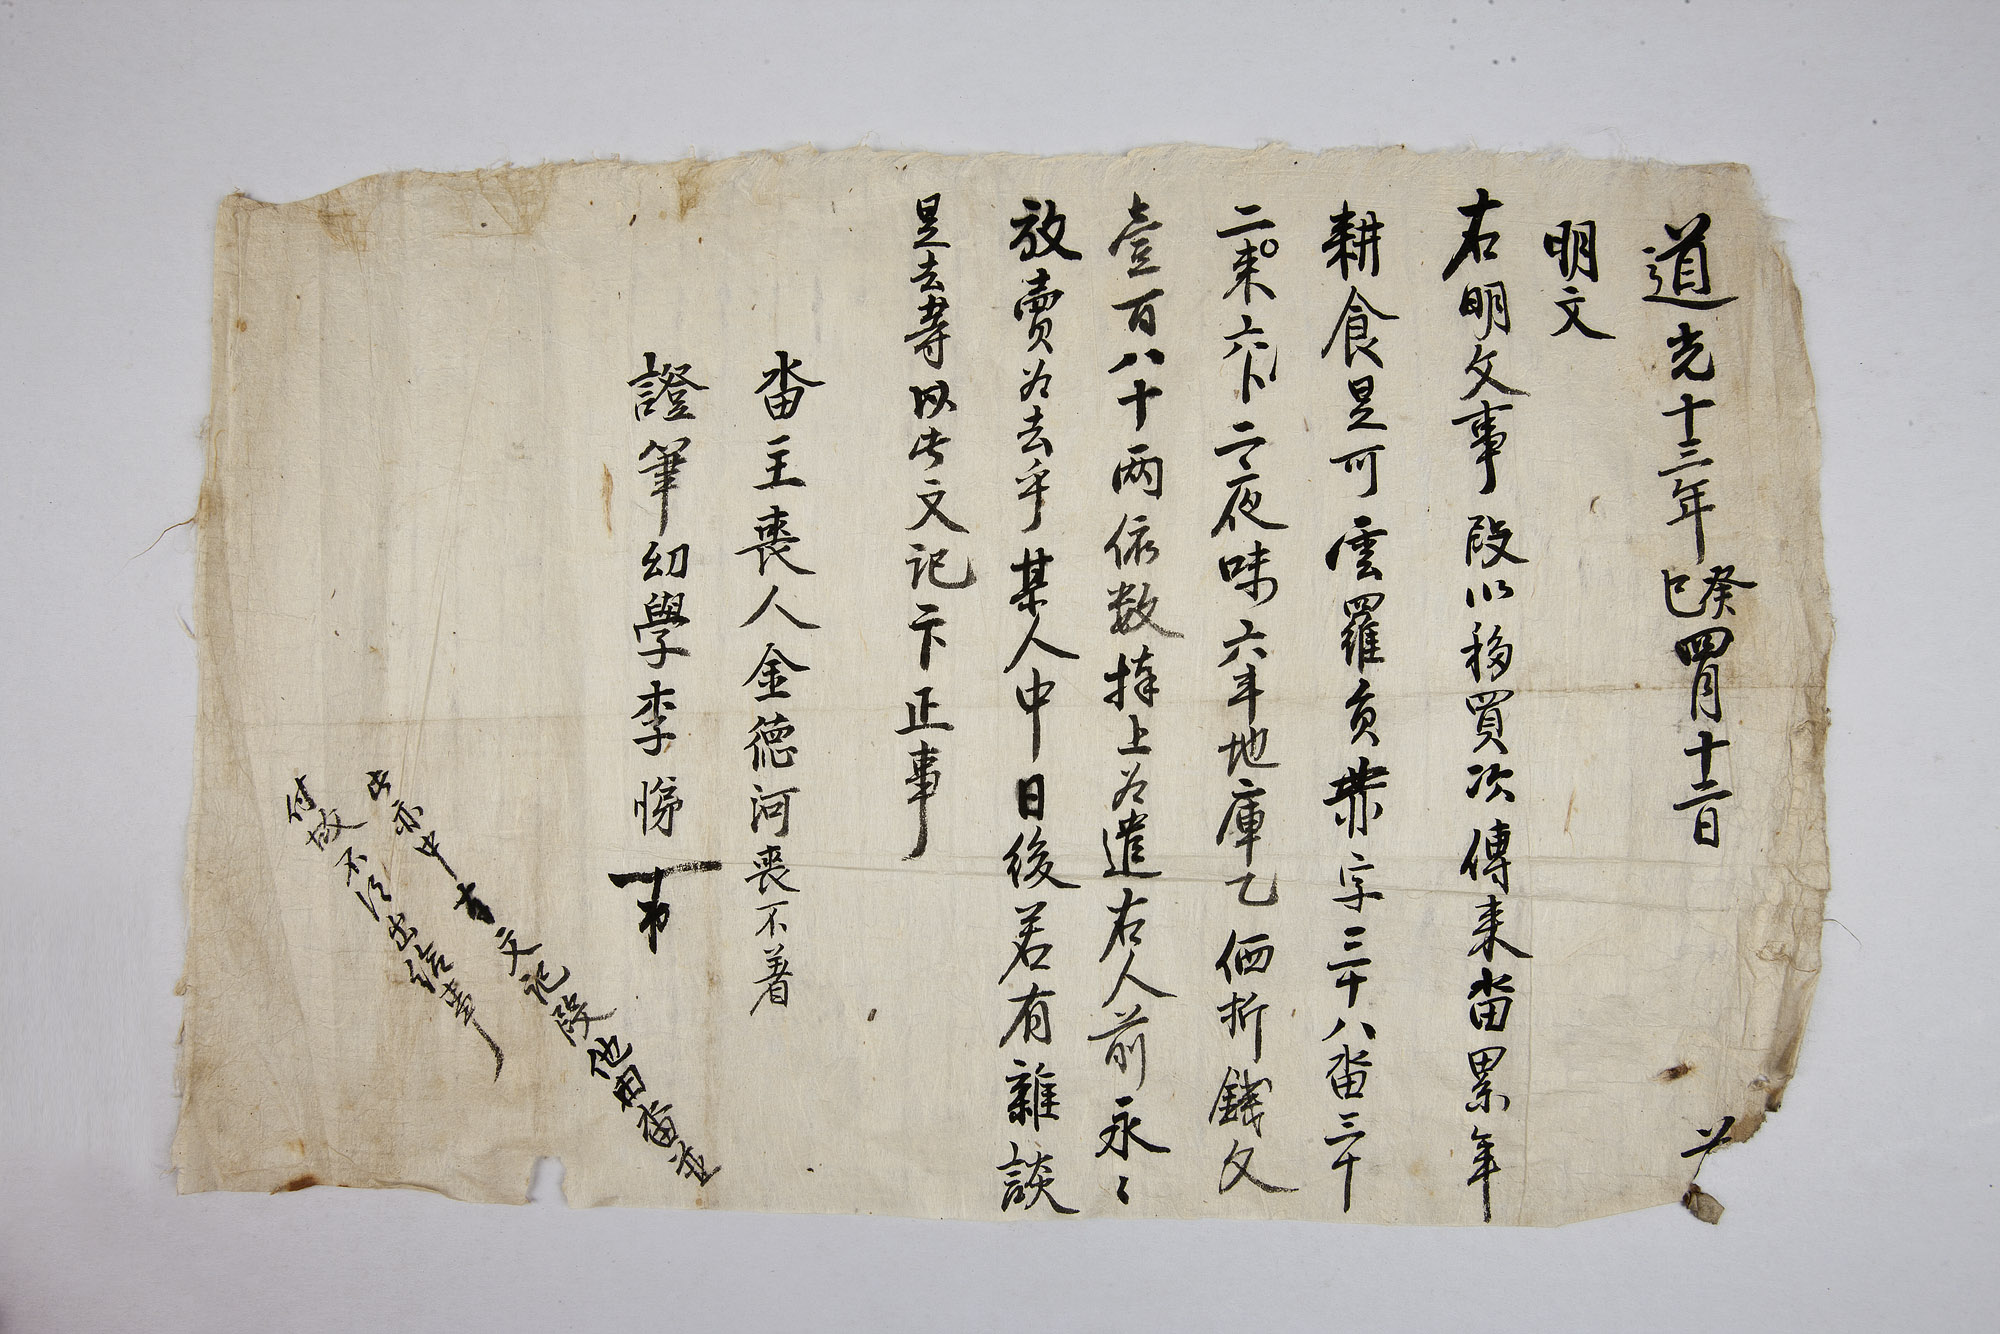 道光十三年癸巳四月十二日
明文
右明文事段以移買次傳来畓累年
耕食是可雲羅員業字三十八畓三十
二未六卜二夜味六斗地庫乙価折錢文
壹百八十両依数捧上為遣右人前永〻
放賣為去乎某人中日後若有雜談
是去等以此文記卞正事
畓主喪人金德河喪不着
證筆幼學李
此亦中古文記段他田畓並
付故不得出給事